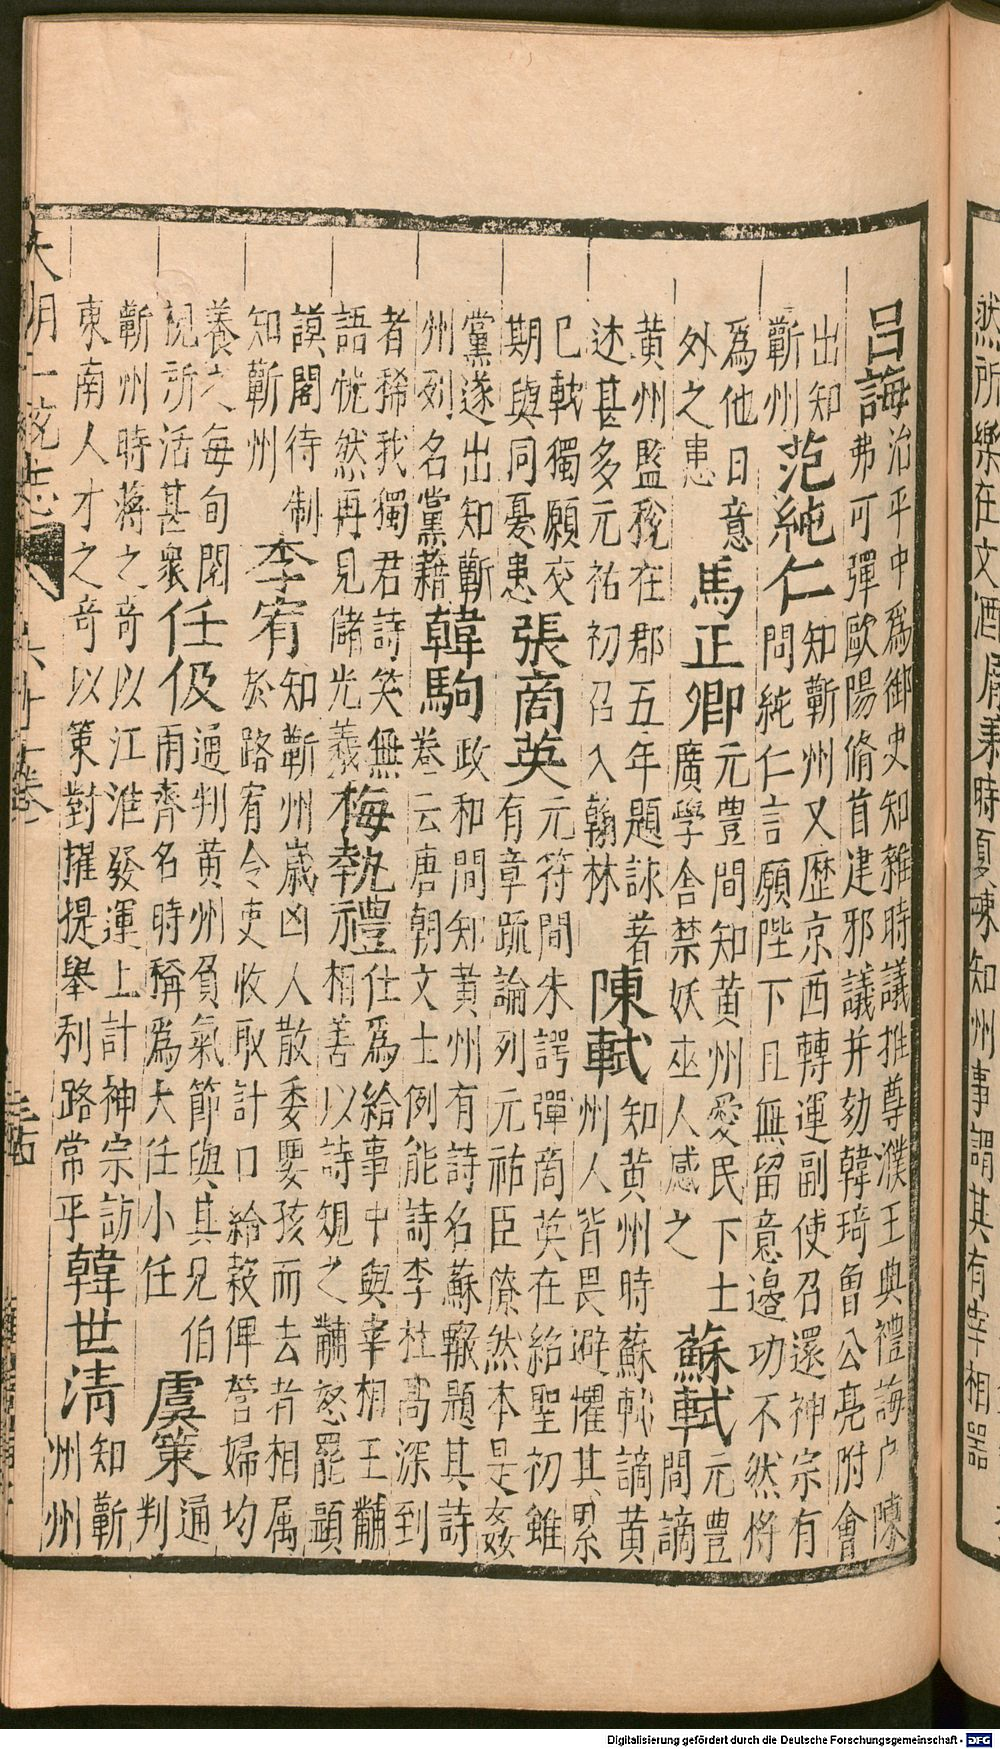 然所樂在文酒
時夏竦知州事謂其有宰相器
呂誨
治平中為御史知雜時議推尊濮王典禮誨戶陳
弗可彈歐陽脩首建邪議并劾韓琦曾公亮附會
出知
蘄州
范純仁
知蘄州又歷京西轉運副使召還神宗有
問純仁言願陛下且無留意邊功不然將
為他日意
外之患
馬正卿
元豐間知黄州愛民下士
廣學舍禁妖巫人感之
蘇軾
元豐
間謫
黄州監稅在郡五年題詠著
述甚多元祐初召入翰林
陳軾
知黄州時蘇軾謫黄
州人皆畏避懼其累
巳軾獨願交
期與同憂患
張商英
元符間朱諤彈商英在紹聖初雖
有章疏論列元祐臣僚然本是姦
黨遂出知蘄
州列名黨籍
韓駒
政和間知黄州有詩名蘇轍題其詩
卷云唐朝文士例能詩李杜高深到
者稀我獨君詩笑無
語恍然再見儲光羲
梅執禮
仕為給事中與宰相王黼
相善以詩規之黼怒罷顯
謨閣待制
知蘄州
李宥
知蘄州歲凶人散委嬰孩而去者相属
於路宥令吏收取計口給穀俾營婦均
養之每旬閱
視所活甚衆
任伋
通判黄州負氣節與其見伯
雨齊名時稱為大任小任
虞策
通
判
蘄州時蔣之奇以江淮發運上計神宗訪
東南人才之奇以策對擢提舉利路常平
韓世清
知蘄
州州
大明一統志
Digitalisierung gefördert durch die Deutsche Forschungsgemeinschaft - DFG